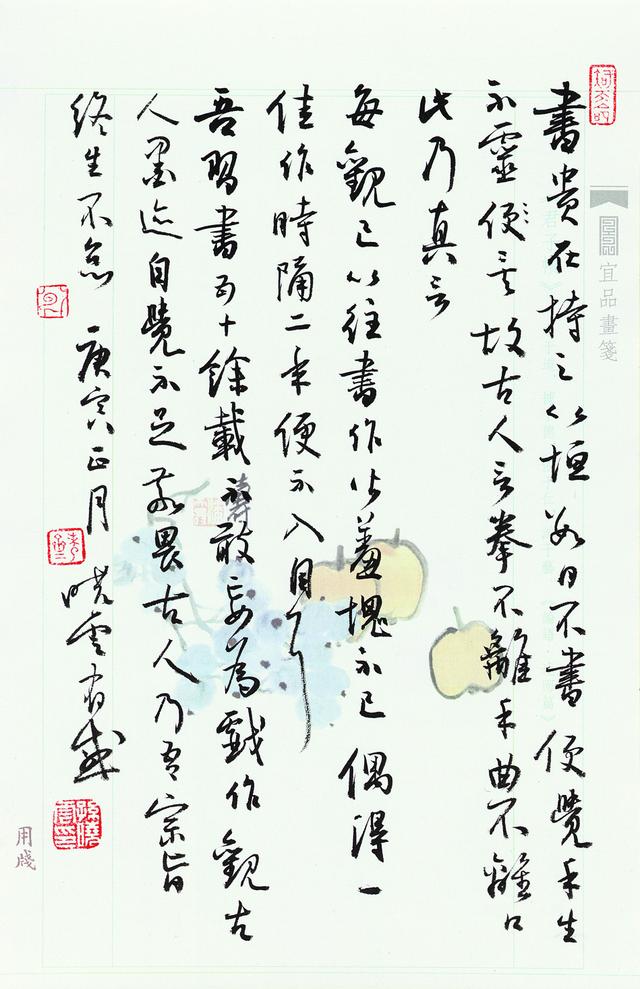 書貴在持之以恒如日不書便覺手生
不靈便言故古人言拳不離手曲不離口
此乃真言
每觀已以往書作皆羞愧不已偶得一
佳作時隔二年便不入目了
吾習書五十餘載不敢妄為戲作觀古
人墨迹自覺不足敬畏古人乃吾宗旨
終生不怠 庚寅正月 曉雲有感
宜品畫箋
用牋